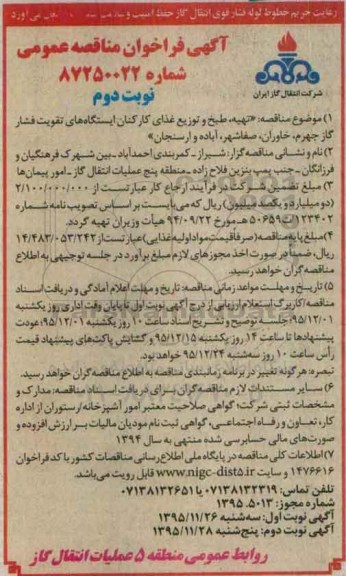 رعایت حریم خطوط لوله فشار قوی انتقال گاز حفظ امنیت و سلامت
آگهی فراخوان مناقصه عمومی
شماره ۸۷۲۵۰۰۲۲
نوبت دوم
شرکت انتقال گاز ایران
۱) موضوع مناقصه: «تهیه، طبخ و توزیع غذای کارکنان ایستگاه‌های تقویت فشار
گاز جهرم، خاوران، صفاشهر، آباده و ارسنجان»
۲) نام و نشانی مناقصه‌گزار: شیراز ـ کمربندی احمدآباد ـ بین شهرک فرهنگیان و
فرزانگان ـ جنب پمپ بنزین فلاح زاده ـ منطقه پنج عملیات انتقال گاز ـ امور پیمان‌ها
۳) مبلغ تضمین شرکت در فرآیند ارجاع کار عبارتست از ۲/۱۰۰/۰۰۰/۰۰۰
(دو میلیارد و یکصد میلیون) ریال که می‌بایست بر اساس تصویب نامه شماره
۱۲۳۴۰۲/ت۵۰۶۵۹هـ مورخ ۹۴/۰۹/۲۲ هیأت وزیران تهیه گردد.
۴) مبلغ پایه مناقصه (صرفا قیمت مواد اولیه غذایی) عبارتست از ۱۴/۴۸۳/۰۵۳/۲۴۲
ریال، ضمناً در صورت اخذ مجوزهای لازم مبلغ برآورد در جلسه توجیهی به اطلاع
مناقصه گران خواهد رسید.
۵) تاریخ و مهلت مواعد زمانی مناقصه: تاریخ و مهلت اعلام آمادگی و دریافت اسناد
مناقصه/کاربرگ استعلام ارزیابی از درج آگهی نوبت اول تا پایان وقت اداری روز یکشنبه
۹۵/۱۲/۰۱؛ جلسه توضیح و تشریح اسناد ساعت ۱۰ روز یکشنبه ۹۵/۱۲/۰۱؛ عودت
پیشنهادها تا ساعت ۱۴ روز یکشنبه ۹۵/۱۲/۱۵ و گشایش پاکت‌های پیشنهاد قیمت
رأس ساعت ۱۰ روز سه‌شنبه ۹۵/۱۲/۲۴ خواهد بود.
تبصره: هر گونه تغییر در برنامه زمانبندی مناقصه به اطلاع مناقصه گران خواهد رسید.
۶) سایر مستندات لازم مناقصه گران برای دریافت اسناد مناقصه: مدارک و
مشخصات ثبتی شرکت؛ گواهی صلاحیت معتبر امور آشپزخانه/رستوران از اداره
کار، تعاون و رفاه اجتماعی، گواهی ثبت نام مودیان مالیات بر ارزش افزوده و
صورت‌های مالی حسابرسی شده منتهی به سال ۱۳۹۴
۷) اطلاعات کلی مناقصه در پایگاه ملی اطلاع رسانی مناقصات کشور با کد فراخوان
۱۴۷۶۶۱۶ و سایت www.nigc-dist5.ir قابل رویت می‌باشد.
تلفن تماس: ۰۷۱۳۸۱۳۲۳۱۹ یا ۰۷۱۳۸۱۳۲۶۵۱
شماره مجوز: ۵۰۱۳. ۱۳۹۵
آگهی نوبت اول: سه‌شنبه ۱۳۹۵/۱۱/۲۶
آگهی نوبت دوم: پنج‌شنبه ۱۳۹۵/۱۱/۲۸
روابط عمومی منطقه ۵ عملیات انتقال گاز